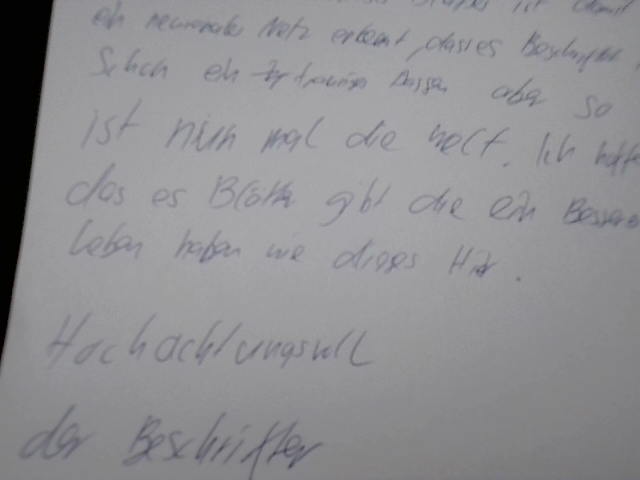 ist damit
ein neuronales Netz erkennt, dass es Beschriftet
Schon ein trauriges Dassein aber so
ist nun mal die welt. Ich hoffe
das es Blätter gibt die ein Besseres
Leben haben wie dieses Hir.
Hochachtungsvoll
der Beschrifter